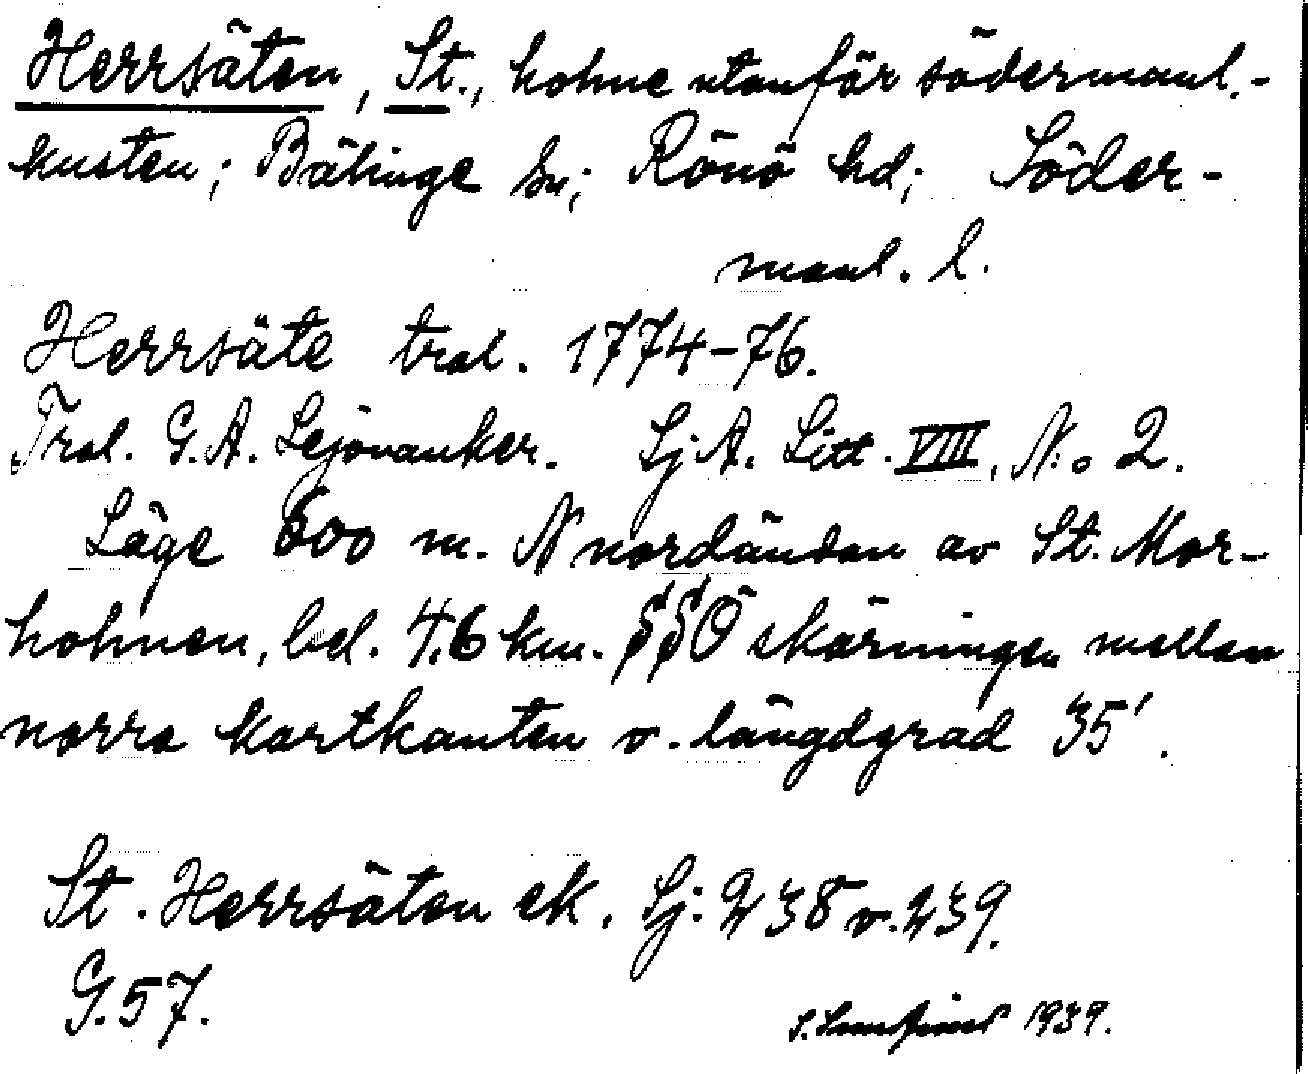 Herrsäten, St., holme utanför södermanl.-
kusten; Bälinge sn; Rönö hd; Söder-
manl. l.
Herrsäte tral. 1774-76.
Tral. G.A. Lejonanker. Sj A. Litt. VIII, N:o 2.
Läge 600 m. N nordändan av St. Mor-
holmen, bel. 4,6 km. SSÖ skärningen mellan
norra kartkanten o. längdgrad 35'.
St. Herrsäten ek. Sj: 238 o. 239.
G. 57.
1939.